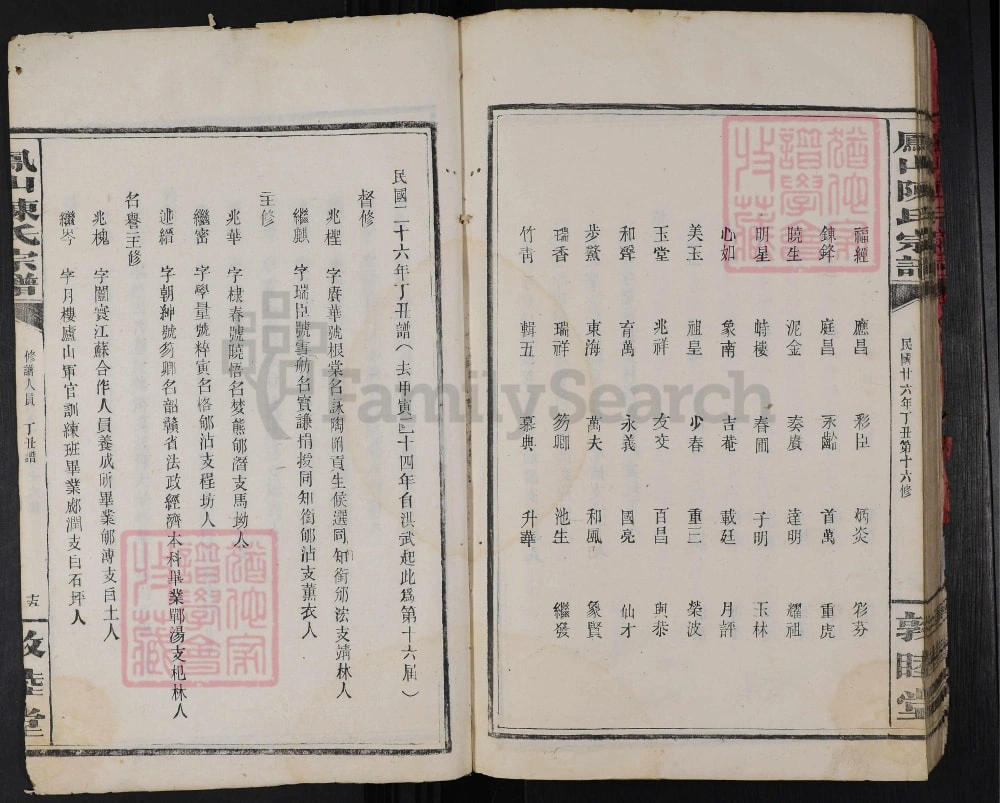 鳳山陳氏宗譜
民國廿六年丁丑第十六修
敦睦堂
福經 應昌 彩臣 炳炎 彩芬
錬鋒 庭昌 永齡 首萬 重虎
曉生 泥金 奏賡 達明 耀祖
明星 時樓 春圃 子明 玉林
心如 象南 吉菴 載廷 月評
美玉 祖皇 少春 重三 榮波
玉堂 兆祥 友文 百昌 與泰
和聲 育萬 永義 國亮 仙才
步鰲 東海 萬夫 和風 象賢
瑞香 瑞祥 芴卿 池生 繼發
竹靑 輯五 慕典 升華
民國二十六年丁丑譜(去甲寅二十四年自洪武起此爲第十六屆)
督修
兆樫 字賡華號根堂名詠陶附貢生候選同知銜邠浤支靖林人
繼麒 字瑞臣號雪舫名寳謙捐授同知銜郇沾支薰衣人
主修
兆華 字棣春號曉悟名夢熊郇潛支馬坳人
繼密 字學量號粹寅名恪郇沾支程坊人
述縉 字朝紳號芴卿名韶贛省法政經濟本科畢業鄲湯支杞林人
名譽主修
兆槐 字闓寰江蘇合作人員養成所畢業郇溥支白土人
繼岑 字月樓廬山軍官訓練班畢業郕潤支白石坪人
修譜人員 丁丑譜
敦睦堂
鳳山陳氏宗譜
猶他家譜學會特藏
猶他家譜學會特藏
FamilySearch